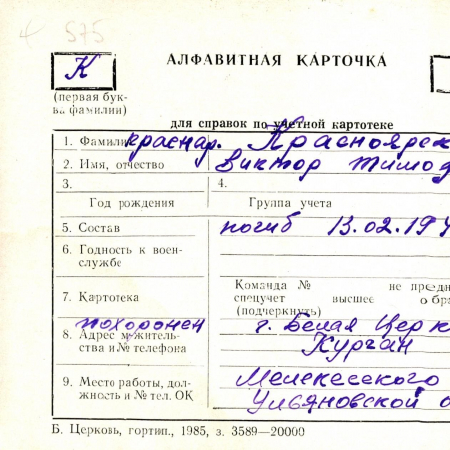 575
К
АЛФАВИТНАЯ КАРТОЧКА
(первая бук-
ва фамилии)
для справок по учетной картотеке
1. Фамилия краснар. Краснояров
2. Имя, отчество Виктор Тимоф
3. 4.
Год рождения Группа учета
5. Состав погиб 13.02.194
6. Годность к воен-
службе
Команда № не предн
7. Картотека спецучет высшее обра
(подчеркнуть)
похоронен г. Белая Церк
8. Адрес м жительс- Курган
тва и № телефона
9. Место работы, дол- Мелекесского
жность и № тел. ОК Ульяновской о
Б. Церковь, гортип., 1985, з. 3589—20000